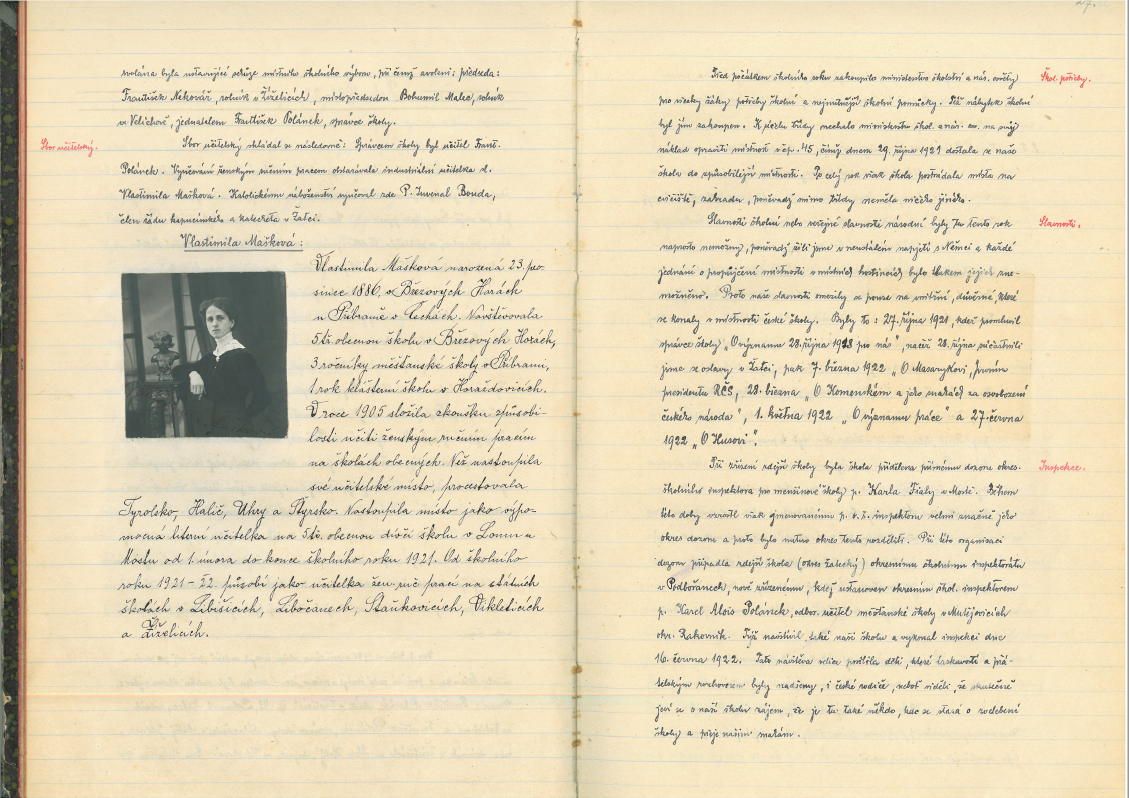 svolána byla ustavující schůze místního školního výboru, při čemž zvoleni: předseda:
František Nekovář, rolník v Žiželicích, místopředsedou Bohumil Malec, rolník
ve Velichově, jednatelem František Polánek, správce školy.
Sbor učitelský.
Sbor učitelský skládal se následovně: Správcem školy byl učitel Frant.
Polánek. Vyučování ženským ručním pracem obstarávala industriální učitelka sl.
Vlastimila Mašková. Katolickému náboženství vyučoval zde P. Juvenal Bouda,
člen řádu kapucínského a katecheta v Žatci.
Vlastimila Mašková:
Vlastimila Mašková narozená 23. pro-
since 1886 v Březových Horách
u Příbramě v Čechách. Navštěvovala
5tř. obecnou školu v Březových Horách,
3 ročníky měšťanské školy v Příbrami,
1 rok klášterní školu v Horažďovicích.
V roce 1905 složila zkoušku způsobi-
losti učiti ženským ručním pracím
na školách obecných. Než nastoupila
své učitelské místo, procestovala
Tyrolsko, Halič, Uhry a Štyrsko. Nastoupila místo jako výpo-
mocná literní učitelka na 5tř. obecnou dívčí školu v Lomu u
Mostu od 1. února do konce školního roku 1921. Od školního
roku 1921-22 působí jako učitelka žen. ruč. prací na státních
školách v Liběšicích, Libočanech, Staňkovicích, Vikleticích
a Žiželicích.
27.
Před počátkem školního roku zakoupilo ministerstvo školství a nár. osvěty
Škol. potřeby.
pro všecky žáky potřeby školní a nejnutnější školní pomůcky. Též nábytek školní
byl jím zakoupen. K účelu třídy nechalo ministerstvo škol. a nár. osv. na svůj
náklad opraviti místnost v čp. 45, čímž dnem 29. října 1921 dostala se naše
škola do způsobilejší místnosti. Po celý rok však škola postrádala místa na
cvičiště, zahradu, poněvadž mimo třídy neměla ničeho jiného.
Slavnosti školní nebo veřejné slavnosti národní byly tu tento rok
Slavnosti.
naprosto nemožny, poněvadž žili jsme v neustálém napjetí s Němci a každé
jednání o propůjčení místnosti v místních hostincích bylo tlakem jejich zne-
možněno. Proto naše slavnosti omezily se pouze na vnitřní, důvěrné, které
se konaly v místnosti české školy. Byly to: 27. října 1921, kdež promluvil
správce školy „O významu 28. října 1918 pro nás“, načež 28. října súčastnili
jsme se oslavy v Žatci, pak 7. března 1922 „O Masarykovi, prvním
presidentu RČS, 28. března „O Komenském a jeho snahách za osvobození
českého národa“, 1. května 1922 „O významu práce“ a 27. června
1922 „O Husovi“.
Při zřízení zdejší školy byla škola přidělena přímému dozoru okres.
Inspekce.
školního inspektora pro menšinové školy p. Karla Fialy v Mostě. Během
této doby vzrostl však jmenovanému p. o. š. inspektoru velmi značně jeho
okres dozoru a proto bylo nutno okres tento rozděliti. Při této organisaci
dozoru připadla zdejší škola (okres žatecký) okresnímu školnímu inspektorátu
v Podbořanech, nově zřízenému, kdež ustanoven okresním škol. inspektorem
p. Karel Alois Polánek, odbor. učitel měšťanské školy v Mutějovicích
okr. Rakovník. Týž navštívil také naši školu a vykonal inspekci dne
16. června 1922. Tato návštěva velice potěšila děti, které laskavostí a přá-
telským rozhovorem byly nadšeny, i české rodiče, neboť viděli, že skutečně
jeví se o naši školu zájem, že je tu také někdo, kdo se stará o zvelebení
školy a přeje našim snahám.